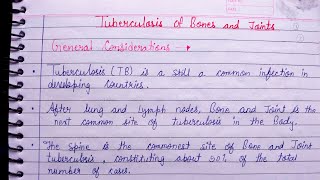 Tuberculosis of Bones and Joints
General Considerations :
• Tuberculosis (TB) is a still a common infection in
developing countries.
• After lung and lymph nodes, Bone and Joint is the
next common site of tuberculosis in the Body.
• The spine is the commonest site of Bone and Joint
tuberculosis, constituting about 50% of the total
number of cases.